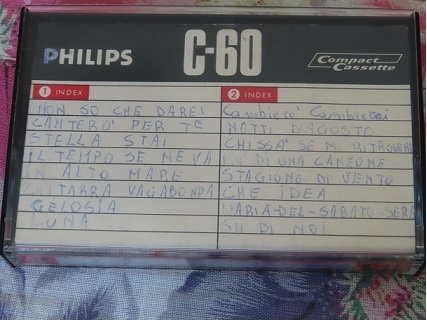 PHILIPS
C-60
Compact Cassette
1 INDEX
NON SO CHE DAREI
CANTERO' PER TE
STELLA STAI
IL TEMPO SE NE VA
IN ALTO MARE
CHITARRA VAGABONDA
GELOSIA
LUNA
2 INDEX
Cambierò Cambierai
NOTTI D'AGOSTO
CHISSÀ SE MI RITROVERAI
PIU' DI UNA CANZONE
STAGIONE DI VENTO
CHE IDEA
L'ARIA-DEL-SABATO-SERA
SU DI NOI